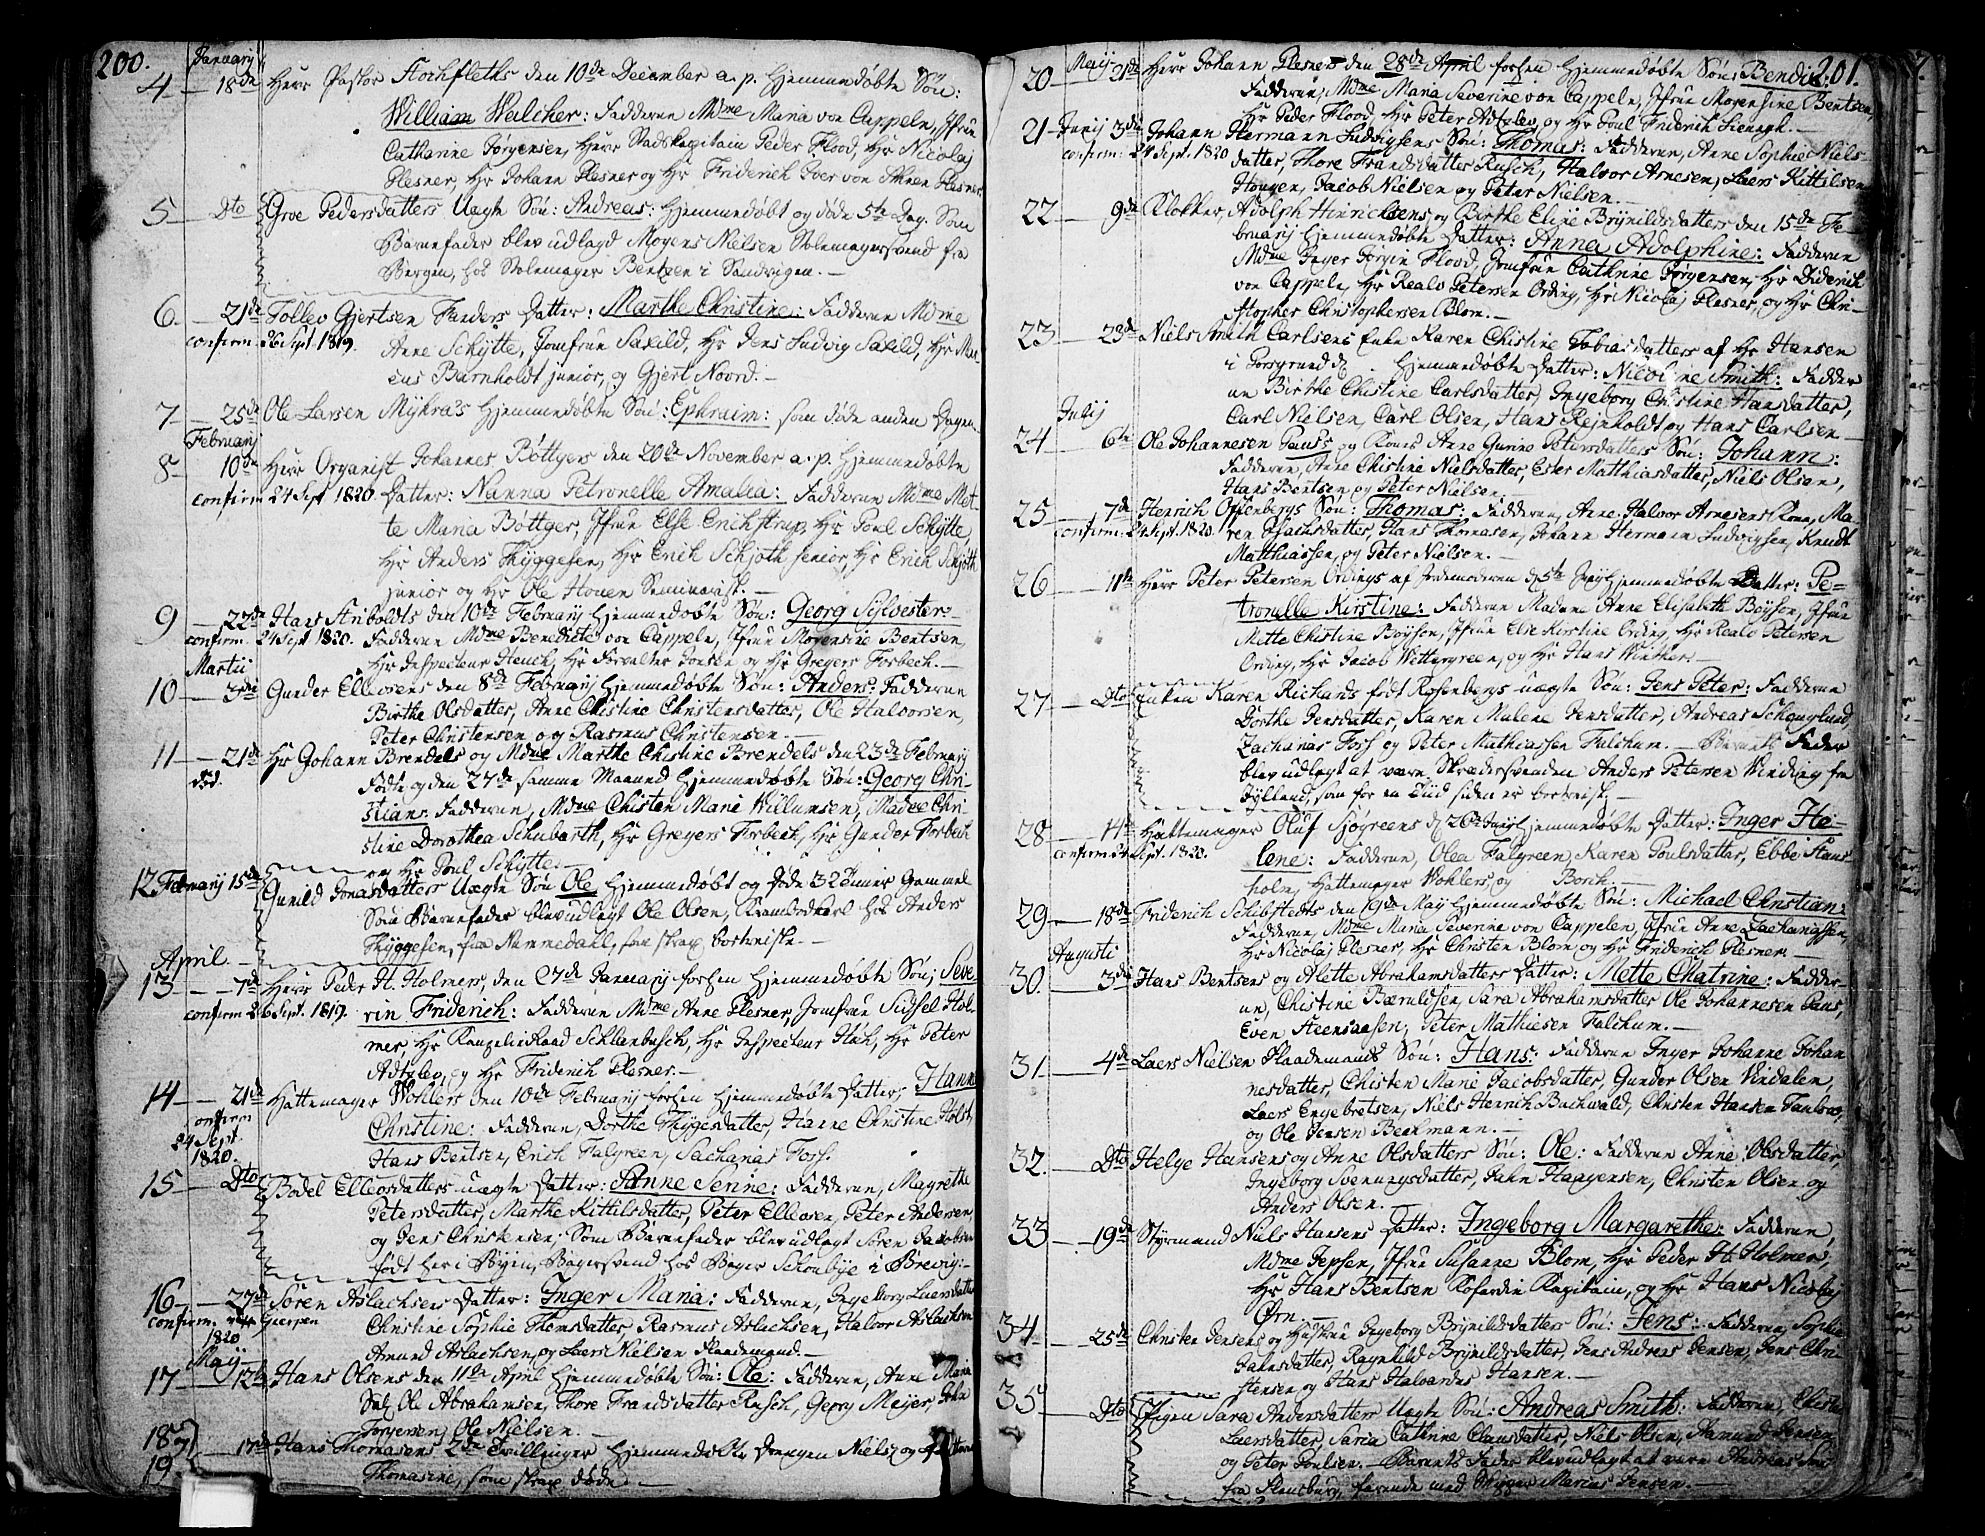 200.
Januarij
4 — 18de Herr Pastor Stochfleths den 10de December a. p. hjemmedøbte Søn:
William Welcher: Fadderne Mdme Maria von Cappeln, Jfrue
Catharine Jørgensen, Herr Stadskapitain Peder Flood, Hr Nicolaj
Plesner, Hr Johann Plesner og Hr Friderich von Plesner
5 — Dto Groe Pedersdatters Uægte Søn: Andreas: hjemmedøbt og døde 5te Dag. Som
Barnefader blev udlagd Mogens Nielsen Stolemagersvend fra
Bergen, hos Stolemager Bentzen i Sandvigen. —
6. — 21de Tollev Gjertsen Fanders Datter: Marthe Christine: Fadderne Mdme
confirm. 26 Sept. 1819.
Anne Schytte, Jomfrue Saxild, Hr Jens Ludvig Saxild, Hr Mar-
cus Barnholdt junior, og Gjert Noord. —
7 — 25de Ole Larsen Myhra's hjemmedøbte Søn: Ephraim: som døde anden Dagen.
Februarij
8 10de Herr Organist Johannes Böttgers den 20de November a. p. hjemmedøbte
confirm 24 Sept 1820. Datter: Nanna Petronelle Amalia: Fadderne Mdme Met-
te Maria Böttger, Jfrue Else Erichstrup, Hr Poul Schytte,
Hr Anders Thyggesen, Hr Erich Schjøth senior, Hr Erich Schjøth
junior og Hr Ole Hoven Seminarist. —
9 — 22de Hans Anboldts den 10de Februarij hjemmedøbte Søn: Georg Sylvester:
confirm. 24 Sept 1820. Fadderne Mdme Benedicte von Cappeln, Jfrue Morensine Bentsen,
Hr Inspecteur Heuch, Hr Forvalter Jonsen og Hr Gregers Forbech. —
Martii
10 — 3die Gunder Ellevsens den 8de Februarij hjemmedøbte Søn: Anders: Fadderne
Birthe Olsdatter, Anne Christine Christensdatter, Ole Halvorsen,
Peter Christensen og Rasmus Christensen. —
11 — 21de Hr Johann Brendels og Mdme Marthe Christine Brendels den 23de Februarij
død. fødte og den 27de samme Maaned hjemmedøbte Søn: Georg Chri-
stian: Fadderne, Mdme Christen Marie Willumsen, Madme Chri-
stine Dorothea Schubarth, Hr Gregers Forbech, Hr Gunder Forbech
og Hr Poul Schytte. —
12. Februarij 15de Gunild Jonasdatters Uægte Søn Ole hjemmedøbt og døde 3 Timer Gammel
Som Barnefader blev udlagt Ole Olsen, hos Anders
Thyggesen, fra Nummedahl, som strax bortreiste. —
April
13 — 7de Herr Peder H. Holmers, den 27de Januarij forhen hjemmedøbte Søn; Seve-
confirm 26 Sept. 1819. rin Friderich: Fadderne Mdme Anne Plesner, Jomfrue Sidsel Hol-
mer, Hr Kancelieraad Schlanbusch, Hr Inspecteur Hück, Hr Peter
Adtzlev og Hr Friderich Plesner. —
14 — 21de Hattemager Wohlers den 10de Februarij forhen hjemmedøbte Datter; Hanne
confirm
24 Sept.
1820. Christine: Fadderne, Dorthe Thyggesdatter, Hanne Christine Holst,
Hans Bentsen, Erich Falgreen, Zacharias Foss.
15 — Dto Bodel Ellevsdatters uægte Datter: Anne Senine: Fadderne, Magrethe
Petersdatter, Marthe Kittilsdatter, Peter Ellevsen, Peter Andersen,
og Jens Christensen; Som Barnefader blev udlagt Søren Jacobsen
født her i Byen, Bagersvend hos Bager Schoubÿe i Brevig: —
16, — 27de Søren Aslachsens Datter: Inger Maria: Fadderne, Ingeborg Larsdatter
confirm. ved Gjerpen
1820 Christine Sophie Thomsdatter, Rasmus Aslachsen, Halvor Aslachsen
Amund Aslachsen og Laers Nielsen Flaademand. —
Maij
17 — 12te Hans Olsens den 11te April hjemmedøbte Søn: Ole: Fadderne, Anne Maria
Salz, Ole Abrahamsen, Thore Frandsdatter Rusch, Georg Meÿer, John
Jørgensen, Ole Nielsen. —
18
19 — 17de Hans Thomasens 2de Tvillinger hjemmedøbte Drengen Niels, og Datteren
Thomasine, som strax døde —
201.
20 — Maij 21de Herr Johann Plesners den 28de April forhen hjemmedøbte Søn: Bendix:
Fadderne, Mdme Maria Severine von Cappeln, Jfrue Morensine Bentsen,
Hr Peder Flood, Hr Peter Adtzlev, og Hr Poul Friderich Lienagh. —
21 — Junij 3die Johann Hermann Ludvigsens Søn: Thomas: Fadderne, Anne Sophie Niels-
confirm: 24 Sept. 1820 datter, Thore Frandsdatter Rusch, Halvor Arnesen, Laers Kittilsen
Hougen, Jacob Nielsen og Peter Nielsen. —
22 — 9de Klokker Adolph Hinrichsens og Birthe Eline Brynildsdatters den 15de Fe-
bruarij hjemmedøbte Datter: Anna Adolphine: Fadderne
Mdme Inger Jørgine Flood, Jomfrue Cathrine Jørgensen, Hr Diderich
von Cappeln, Hr Realv Petersen Ording, Hr Nicolaj Plesner, og Hr Chri-
stopher Christophersen Blom. —
23 — 23de Niels Smith Carlsens Enke Karen Christine Tobiasdatters af Hr Hansen
i Porsgrund d hjemmedøbte Datter: Nicoline Smith: Fadder-
ne Birthe Christine Carlsdatter, Ingeborg Christine Hansdatter,
Carl Nielsen, Carl Olsen, Hans Rejnholdt og Hans Carlsen —
Julij
24 — 6te Ole Johannesen Pauss og Kones Anne Gurine Petersdatters Søn: Johann:
Fadderne, Anne Christine Nielsdatter, Ester Matthiasdatter, Niels Olsen,
Hans Bentsen og Peter Nielsen. —
25 — 7de Henrich Offenbergs Søn: Thomas: Fadderne, Anne Halvor Arnesens Kone, Ma-
confirm: 24 Sept. 1820. ren Isachsdatter, Hans Thomasen, Johann Hermann Ludvigsen, Knudt
Matthiassen, og Peter Nielsen. —
26 — 11te Herr Peter Petersen Ordings af Jordemoderen d 5te Junij hjemmedøbte Datter: Pe-
tronelle Kirstine: Fadderne Madame Anne Elisabeth Boysen, Jfrue
Mette Christine Boysen, Jfrue Else Kirstine Ording, Hr Realv Petersen
Ording, Hr Jacob Wettergreen, og Hr Hans Winther. —
27 — Dto Enken Karen Richards født Rosenbergs uægte Søn: Jens Peter: Fadderne
Dorthe Jensdatter, Karen Malene Jensdatter, Andreas Schouglund,
Zacharias Foss og Peter Mathiassen Falchum. — Barnets Fader
blev udlagt at være Skrædersvenden Anders Petersen Winding fra
Jylland, som for en Tiid siden er bortreist. —
28 — 14de Hattemager Oluf Sjøgreens d 26de Junij hjemmedøbte Datter: Inger He-
confirm: 24 Sept. 1820. lene: Fadderne, Olea Falgreen, Karen Poulsdatter, Ebbe Hans-
holm, Hattemager Wohlers, og Borch. —
29 — 18de Friderich Schibstedts den 19de Maij hjemmedøbte Søn: Michael Christian:
Fadderne, Mdme Maria Severine von Cappelen, Jfrue Anne Zachariassen,
Hr Nicolaj Plesner, Hr Christen Blom og Hr Friderich Plesner. —
Augusti
30. — 3die Hans Bentsens og Alette Abrahamsdatters Datter: Mette Chatrine: Fadder-
ne, Christine Bærnldsen, Sara Abrahamsdatter Ole Johannesen Paus,
Even Steensaasen, Peter Mathiesen Falchum. —
31 — 4de Laers Nielsen Flaademands Søn: Hans: Fadderne Inger Johanne Johan-
nesdatter, Christen Marie Jacobsdatter, Gunder Olsen Vindalen,
Laers Engebretsen, Niels Henrich Buchwald, Christen Hansen Taulow,
og Ole Jensen Beekmann. —
32. — Dto Helge Hansens og Anne Olsdatters Søn: Ole: Fadderne Anne Olsdatter,
Ingeborg Svennungsdatter, Jahn Haagensen, Christen Olsen og
Anders Olsen. —
33 — 19de Styrmand Niels Hansens Datter: Ingeborg Margarethe: Fadderne,
Mdme Jepsen, Jfrue Susanne Blom, Hr Peder H. Holmer,
Hr Hans Bentsen Kofardie Kapitain, og Hr Hans Nicolaj
Ørn. —
34. — 25de Christen Jensens og Hustrue Ingeborg Brynildsdatters Søn: Jens: Fadderne, Sophie
Jahnsdatter, Ragnhild Brynildsdatter, Jens Andreas Jensen, Jens Chri-
stensen og Hans Halvardus Hansen. —
35 — Dto Pigen Sara Andersdatters Uægte Søn: Andreas Smith: Fadderne, Christine
Laersdatter, Saria Cathrine Clausdatter, Niels Olsen, Aamund Jensen
og Peter Poulsen. — Barnets Fader blev udlagt at være Andreas
fra Flensburg, farende med Skipper Marius Jensen. —